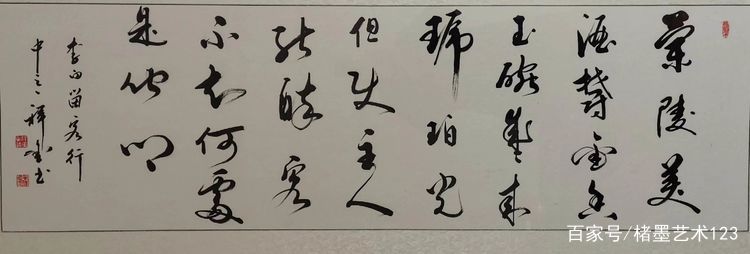 蘭陵美
酒鬱金香
玉碗盛来
琥珀光
但使主人
能醉客
不知何處
是他鄉
李白留客行
百家号/楮墨艺术123